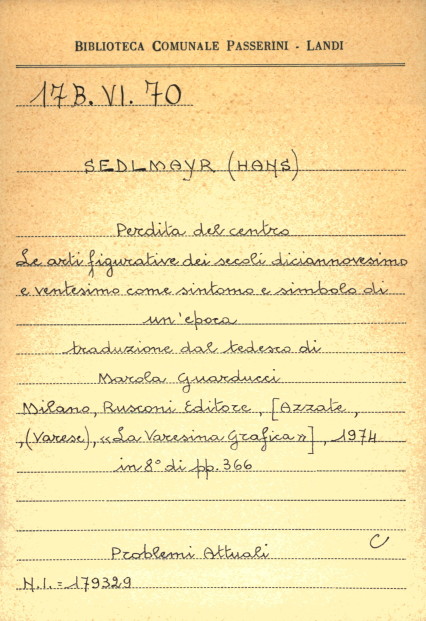 BIBLIOTECA COMUNALE PASSERINI - LANDI
17 B. VI. 70
SEDLMAYR (HANS)
Perdita del centro
Le arti figurative dei secoli diciannovesimo
e ventesimo come sintomo e simbolo di
un'epoca
traduzione dal tedesco di
Marola Guarducci
Milano, Rusconi Editore, [Azzate,
,(Varese), «La Varesina Grafica»], 1974
in 8° di pp. 366
C
Problemi Attuali
N.I. = 179329